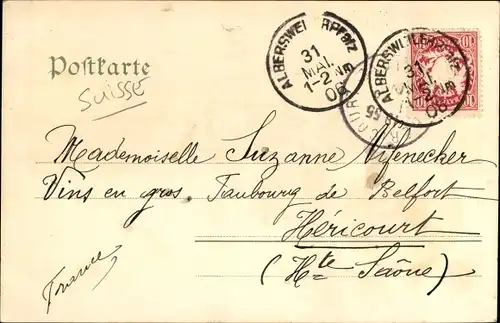 Postkarte
Suisse
ALBERSWEILER RPfalz
31
MAI.
1-2 Nm
06
ALBERSWEILER RPfalz
31
MAI
06
10
10
Mademoiselle Suzanne
Vins en gros. Faubourg de Belfort
Héricourt
(Hte Saône)
France